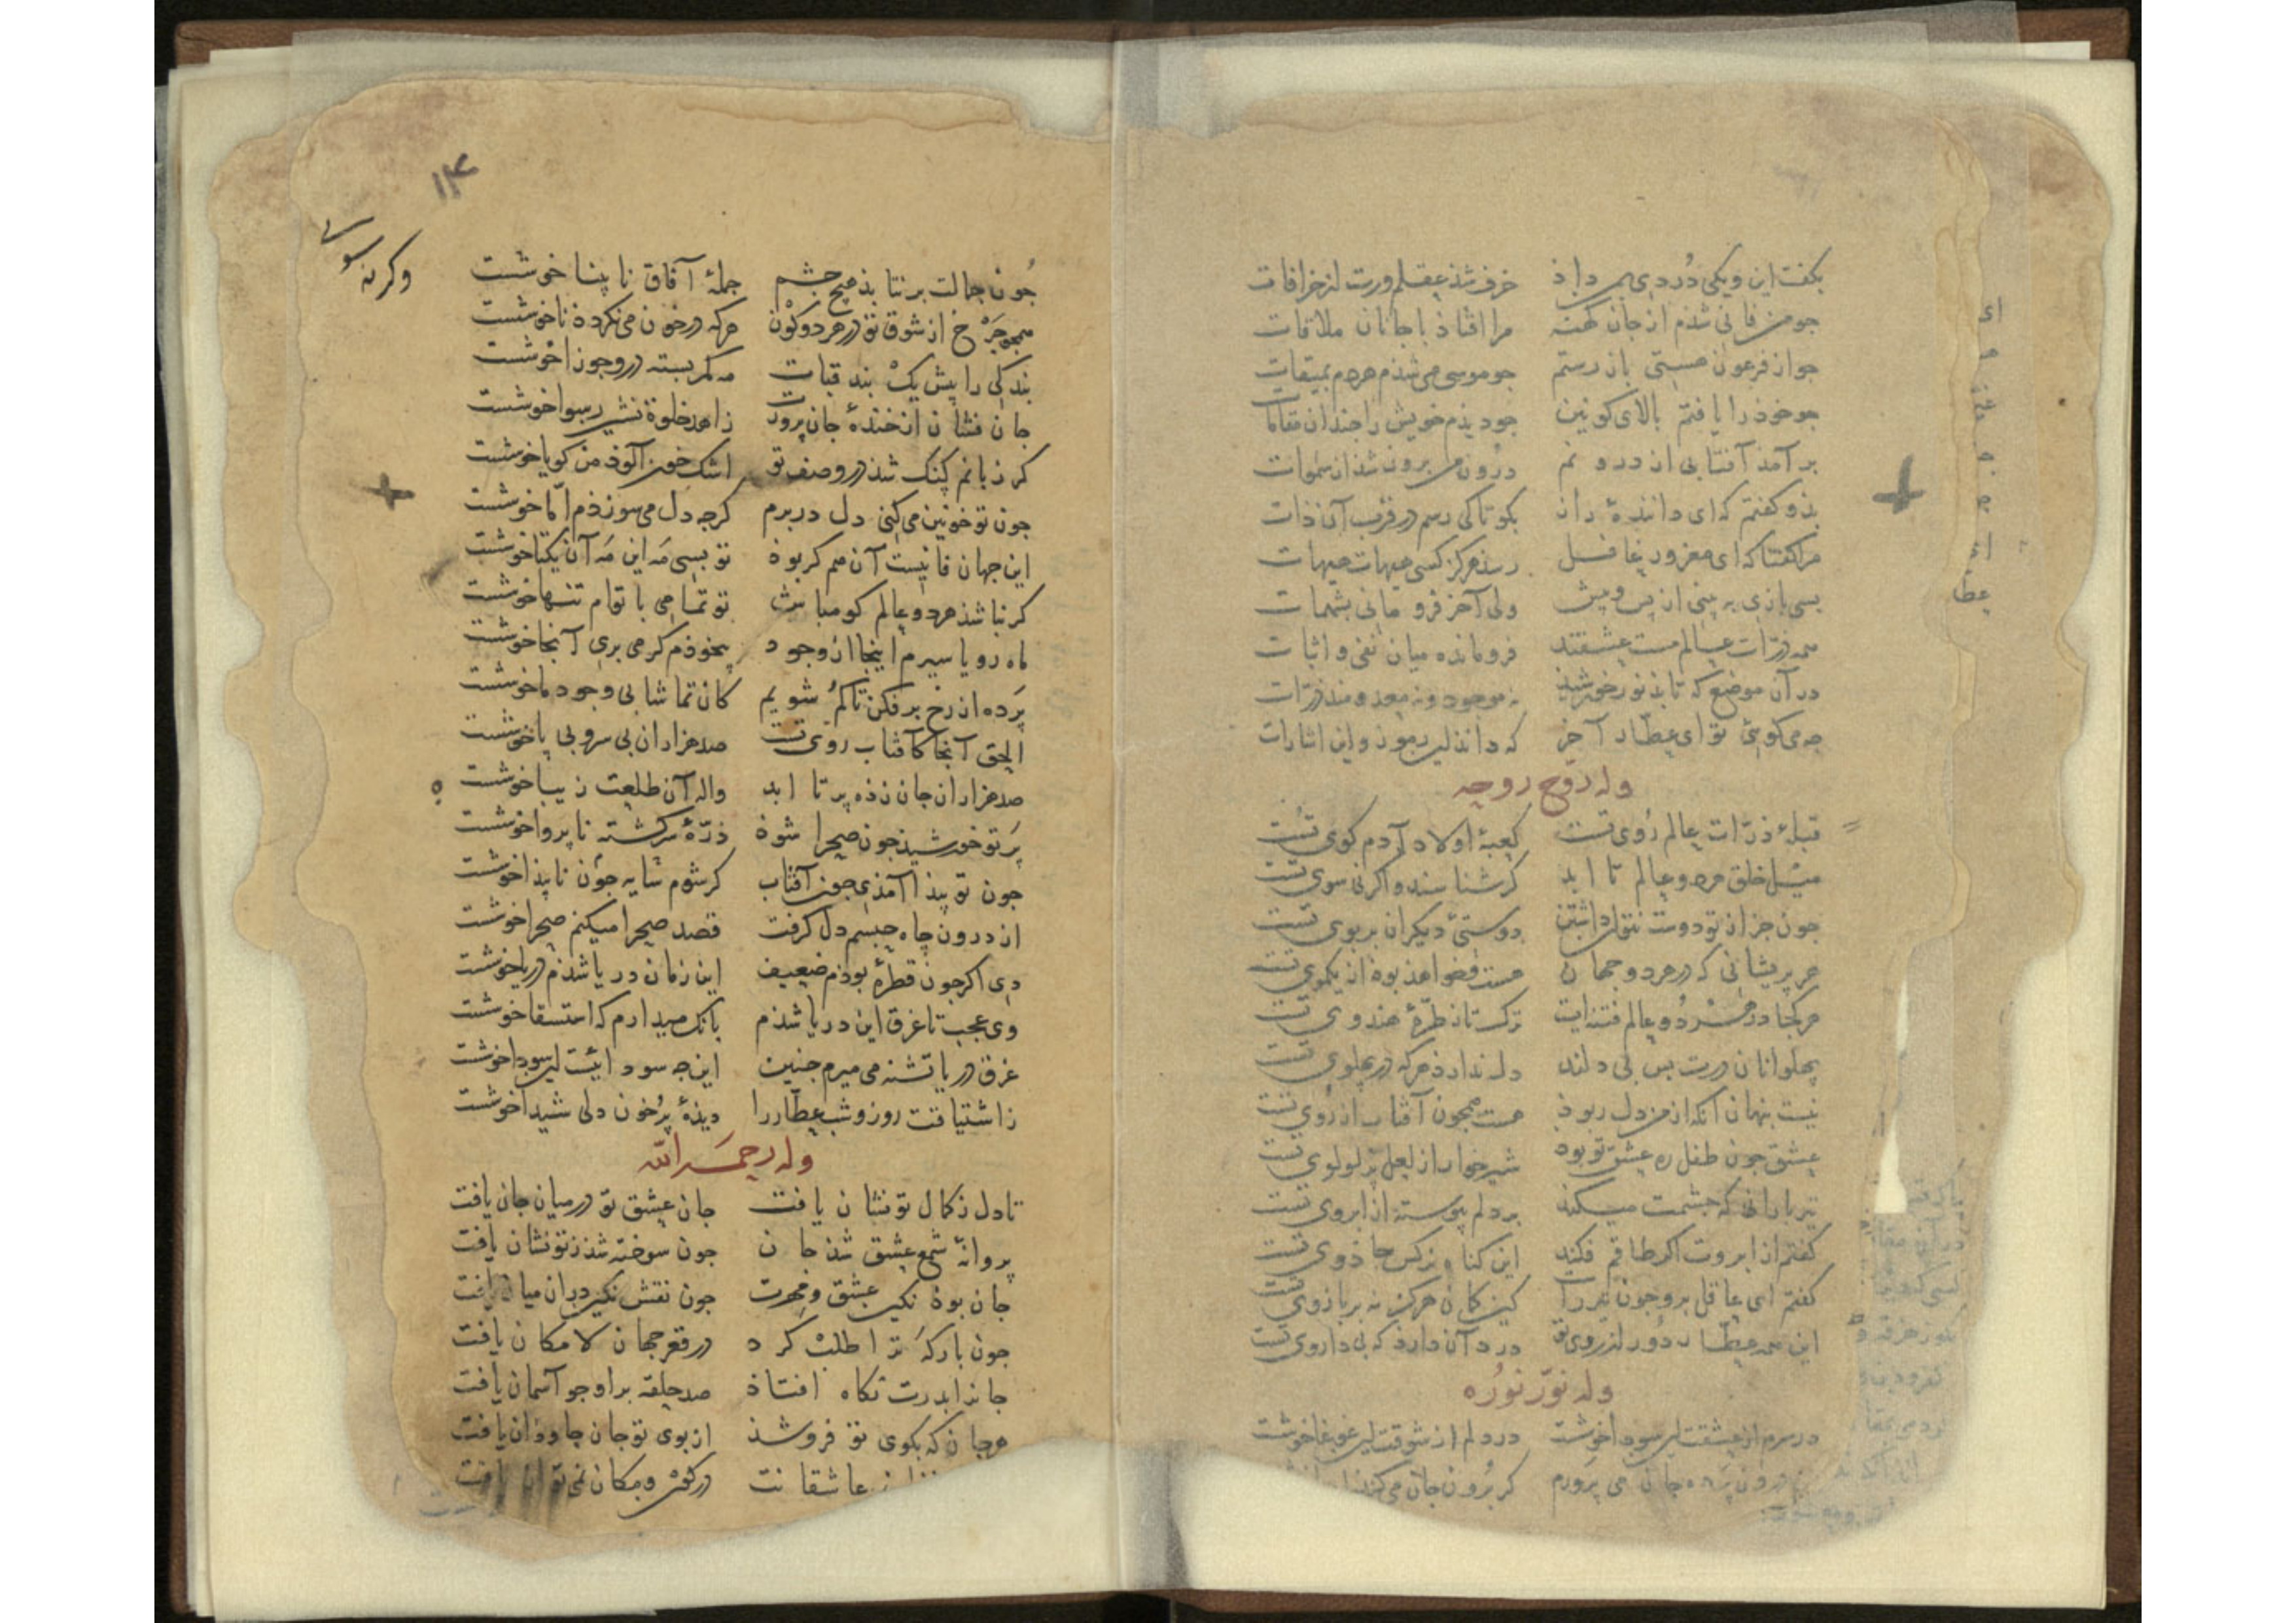 بکفت این و یکی دُردی بمن داذ خرف شذ عقلم ورست از خرافات
جو من فانی شذم از جان کهنه مرا افتاذ با جانان ملاقات
جو از فرعون هستی باز رستم جو موسی می شذم هر دم بمیقات
جو خوذ را یافتم بالای کونین جو دیذم خویش را جندان مقامات
بر آمذ آفتابی از درونم درون من برون شذ از سموات
بذو کفتم که ای دانندهٔ راز بکو تا کی رسم در قرب آن ذات
مرا کفتا که ای مغرور غافل رسذ هرکز کسی هیهات هیهات
بسی بازی ببینی از پس و پیش ولی آخر فرو مانی بشهمات
همه ذرّات عالم مست عشقند فرومانده میان نفی و اثبات
در آن موضع که تابذ نور خورشیذ نه موجود و نه معدومند ذرّات
جه می کوئی تو ای عطّار آخر که داند این رموز و این اشارات
وله روّح روحه
قبلهٔ ذرّات عالم رُوی تست کعبهٔ اولاد آدم کوی تست
میل خلق هر دو عالم تا ابد کر شناسند و اکر نی سوی تست
جون جز از تو دوست نتوان داشتن دوستئ دیکران بر بوی تست
هر پریشانی که در هر دو جهان هست و خواهذ بوذ از یک موی تست
هرکجا در هر دو عالم فتنه ایست ترکتاز طرّهٔ هندوی تست
پهلوانان درت بس بی دلند دل ندارذ هرکه در پهلوی تست
نیست پنهان آنکه از من دل ربوذ هست همجون آفتاب از رُوی تست
عشق جون طفل ره عشق تو بود شیرخوار از لعل پر لولوی تست
تیر بارانی که جشمت میکند بر دلم پیوسته از ابروی تست
کفتم از ابروت اکر طاقم فکند این کناه نرکس جاذوی تست
کفتم ای عاقل برو جون تیر راست کین کمان هرکز نه بر بازوی تست
این همه عطّار دور از روی تو درد آن دارد که بی داروی تست
وله نوّر نوُره
در سرم از عشقت این سودا خوشست در دلم از شوقت این غوغا خوشست
درون پرده جان می پرورم کر بُرون جان می کند
۱۳
وکرنه سوی
جُون جمالت برنتابذ هیچ جشم جملهٔ آفاق نابینا خوشست
همجو جَرخ از شوق تو در هر دو کَون هرکه در خون می نکرده ناخوشست
بندکی را پیش یک بند قبات مه کمر بسته در و جوزا خوشست
جان فشان از خندهٔ جان پرورت زاهد خلوة نشین رسوا خوشست
کر زبانم کنک شذ در وصف تو اشک خون آلوذ من کویا خوشست
جون تو خونین می کنی دل در برم کرجه دل می سوزذم امّا خوشست
این جهان فانیست آن هم کر بوذ تو بسی مَه این مَه آن یکتا خوشست
کر نباشذ هر دو عالم کو مباش تو تمامی با توام تنها خوشست
ماه رویا سیرم اینجا از وجود بیخوذم کر می بری آنجا خوشست
پَرده از رخ برفکن تا کم شویم کان تماشا بی وجود ما خوشست
الحق آنجا کآفتاب روی تست صد هزاران بی سر و بی پا خوشست
صد هزاران جان زذه پر تا ابد واله آن طلعت زیبا خوشست
پَرتو خورشیذ جون صحرا شوذ ذرّهٔ سرکشته ناپروا خوشست
جون تو پیذا آمذی جون آفتاب کر شوم سایه جون ناپیذا خوشست
از درون چاه جسمم دل کرفت قصد صحرا میکنم صحرا خوشست
دی اکر جون قطرهٔ بوذم ضعیف این زمان دریا شذم دریا خوشست
وی عجب تا غرق این دریا شذم بانک میدارم که استسقا خوشست
غرق دریا تشنه می میرم جنین این جه سوداییست این سودا خوشست
ز اشتیاقت روز و شب عطّار را دیذهٔ پرُخون دلی شیدا خوشست
وله رحمَه الله
تا دل ز کمال تو نشان یافت جان عشق تو در میان جان یافت
پروانهٔ شمع عشق شذ جان جون سوخته شذ ز تو نشان یافت
جان بوذ نکین عشق و مهرت جون نقش نکین در آن میان یافت
جون بارکَه ترا طلب کرد در قعر جهان لامکان یافت
جانرا بدرت نکاه افتاذ صد حلقه برو جو آسمان یافت
هر جان که بکوی تو فروشذ از بوی تو جان جاوذان یافت
عاشقانت در کون و مکان نمی توان یافت